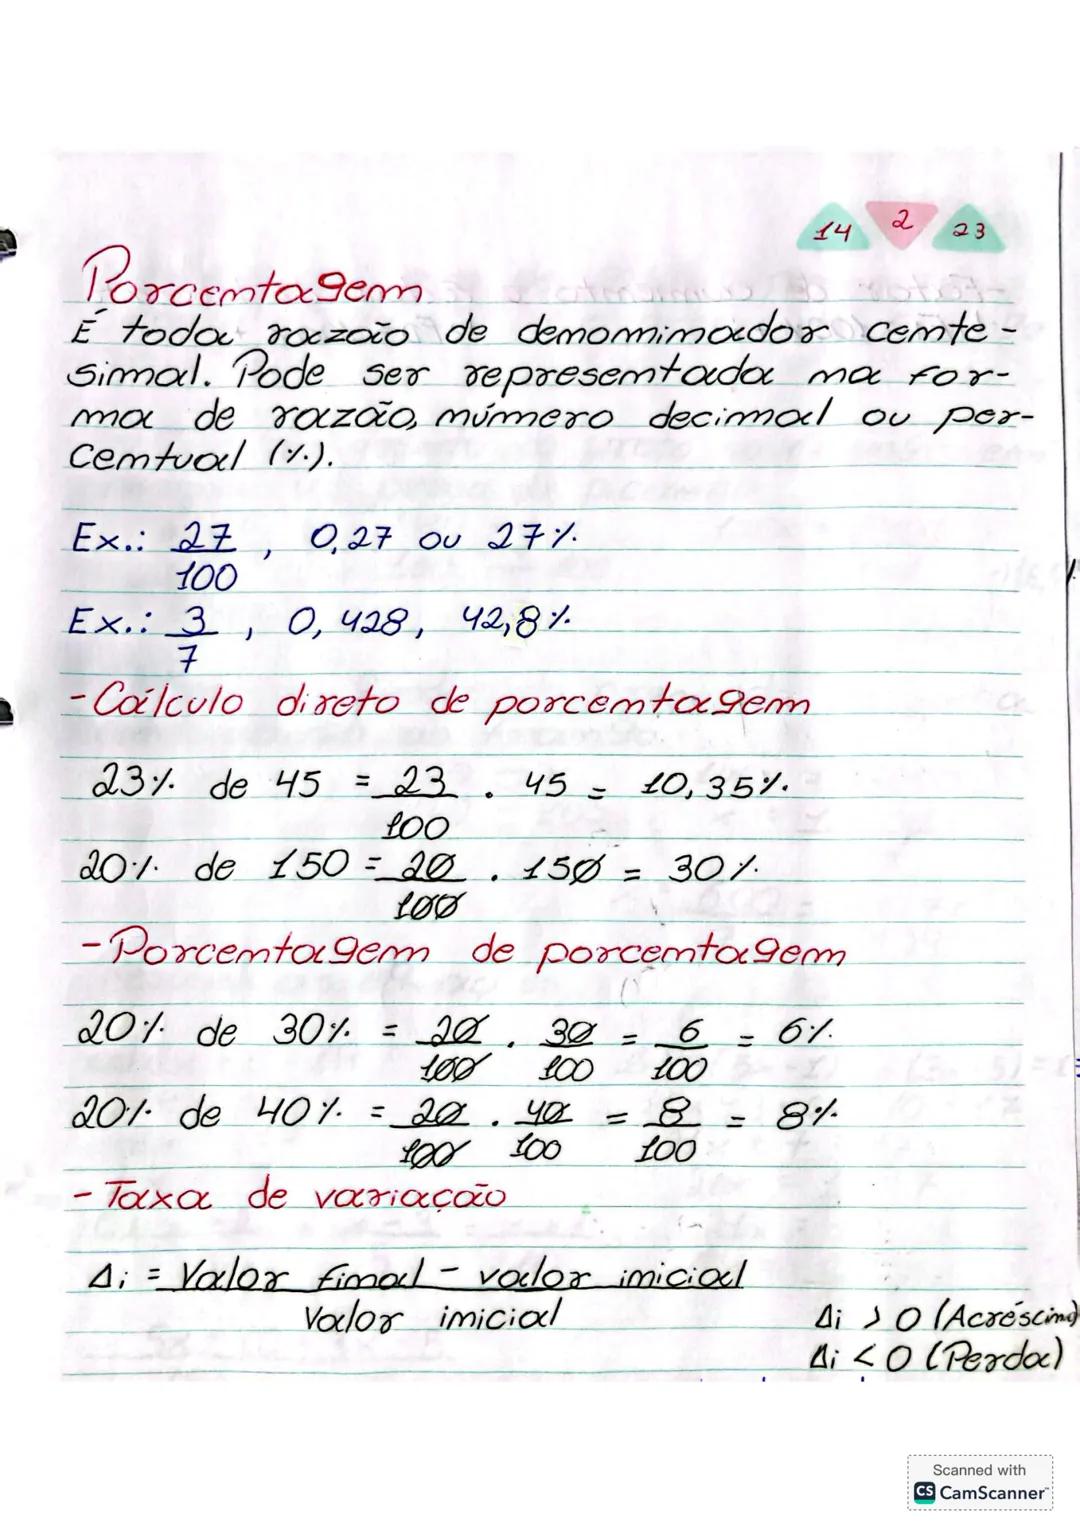 14 2 23
Porcentagem
É toda razão de denominador cente-
simal. Pode ser representada na for-
ma de razão, número decimal ou per-
centual (%).
Ex.: 27/100, 0,27 ou 27%
Ex.: 3/7, 0,428, 42,8%
- Cálculo direto de porcentagem
23% de 45 = 23/100 . 45 = 10,35%
20% de 150 = 20/100 . 150 = 30%
- Porcentagem de porcentagem
20% de 30% = 20/100 . 30/100 = 6/100 = 6%
20% de 40% = 20/100 . 40/100 = 8/100 = 8%
- Taxa de variação
Δi = Valor final - valor inicial
Valor inicial
Δi > 0 (Acréscimo)
Δi < 0 (Perda)
Scanned with
CS CamScanner